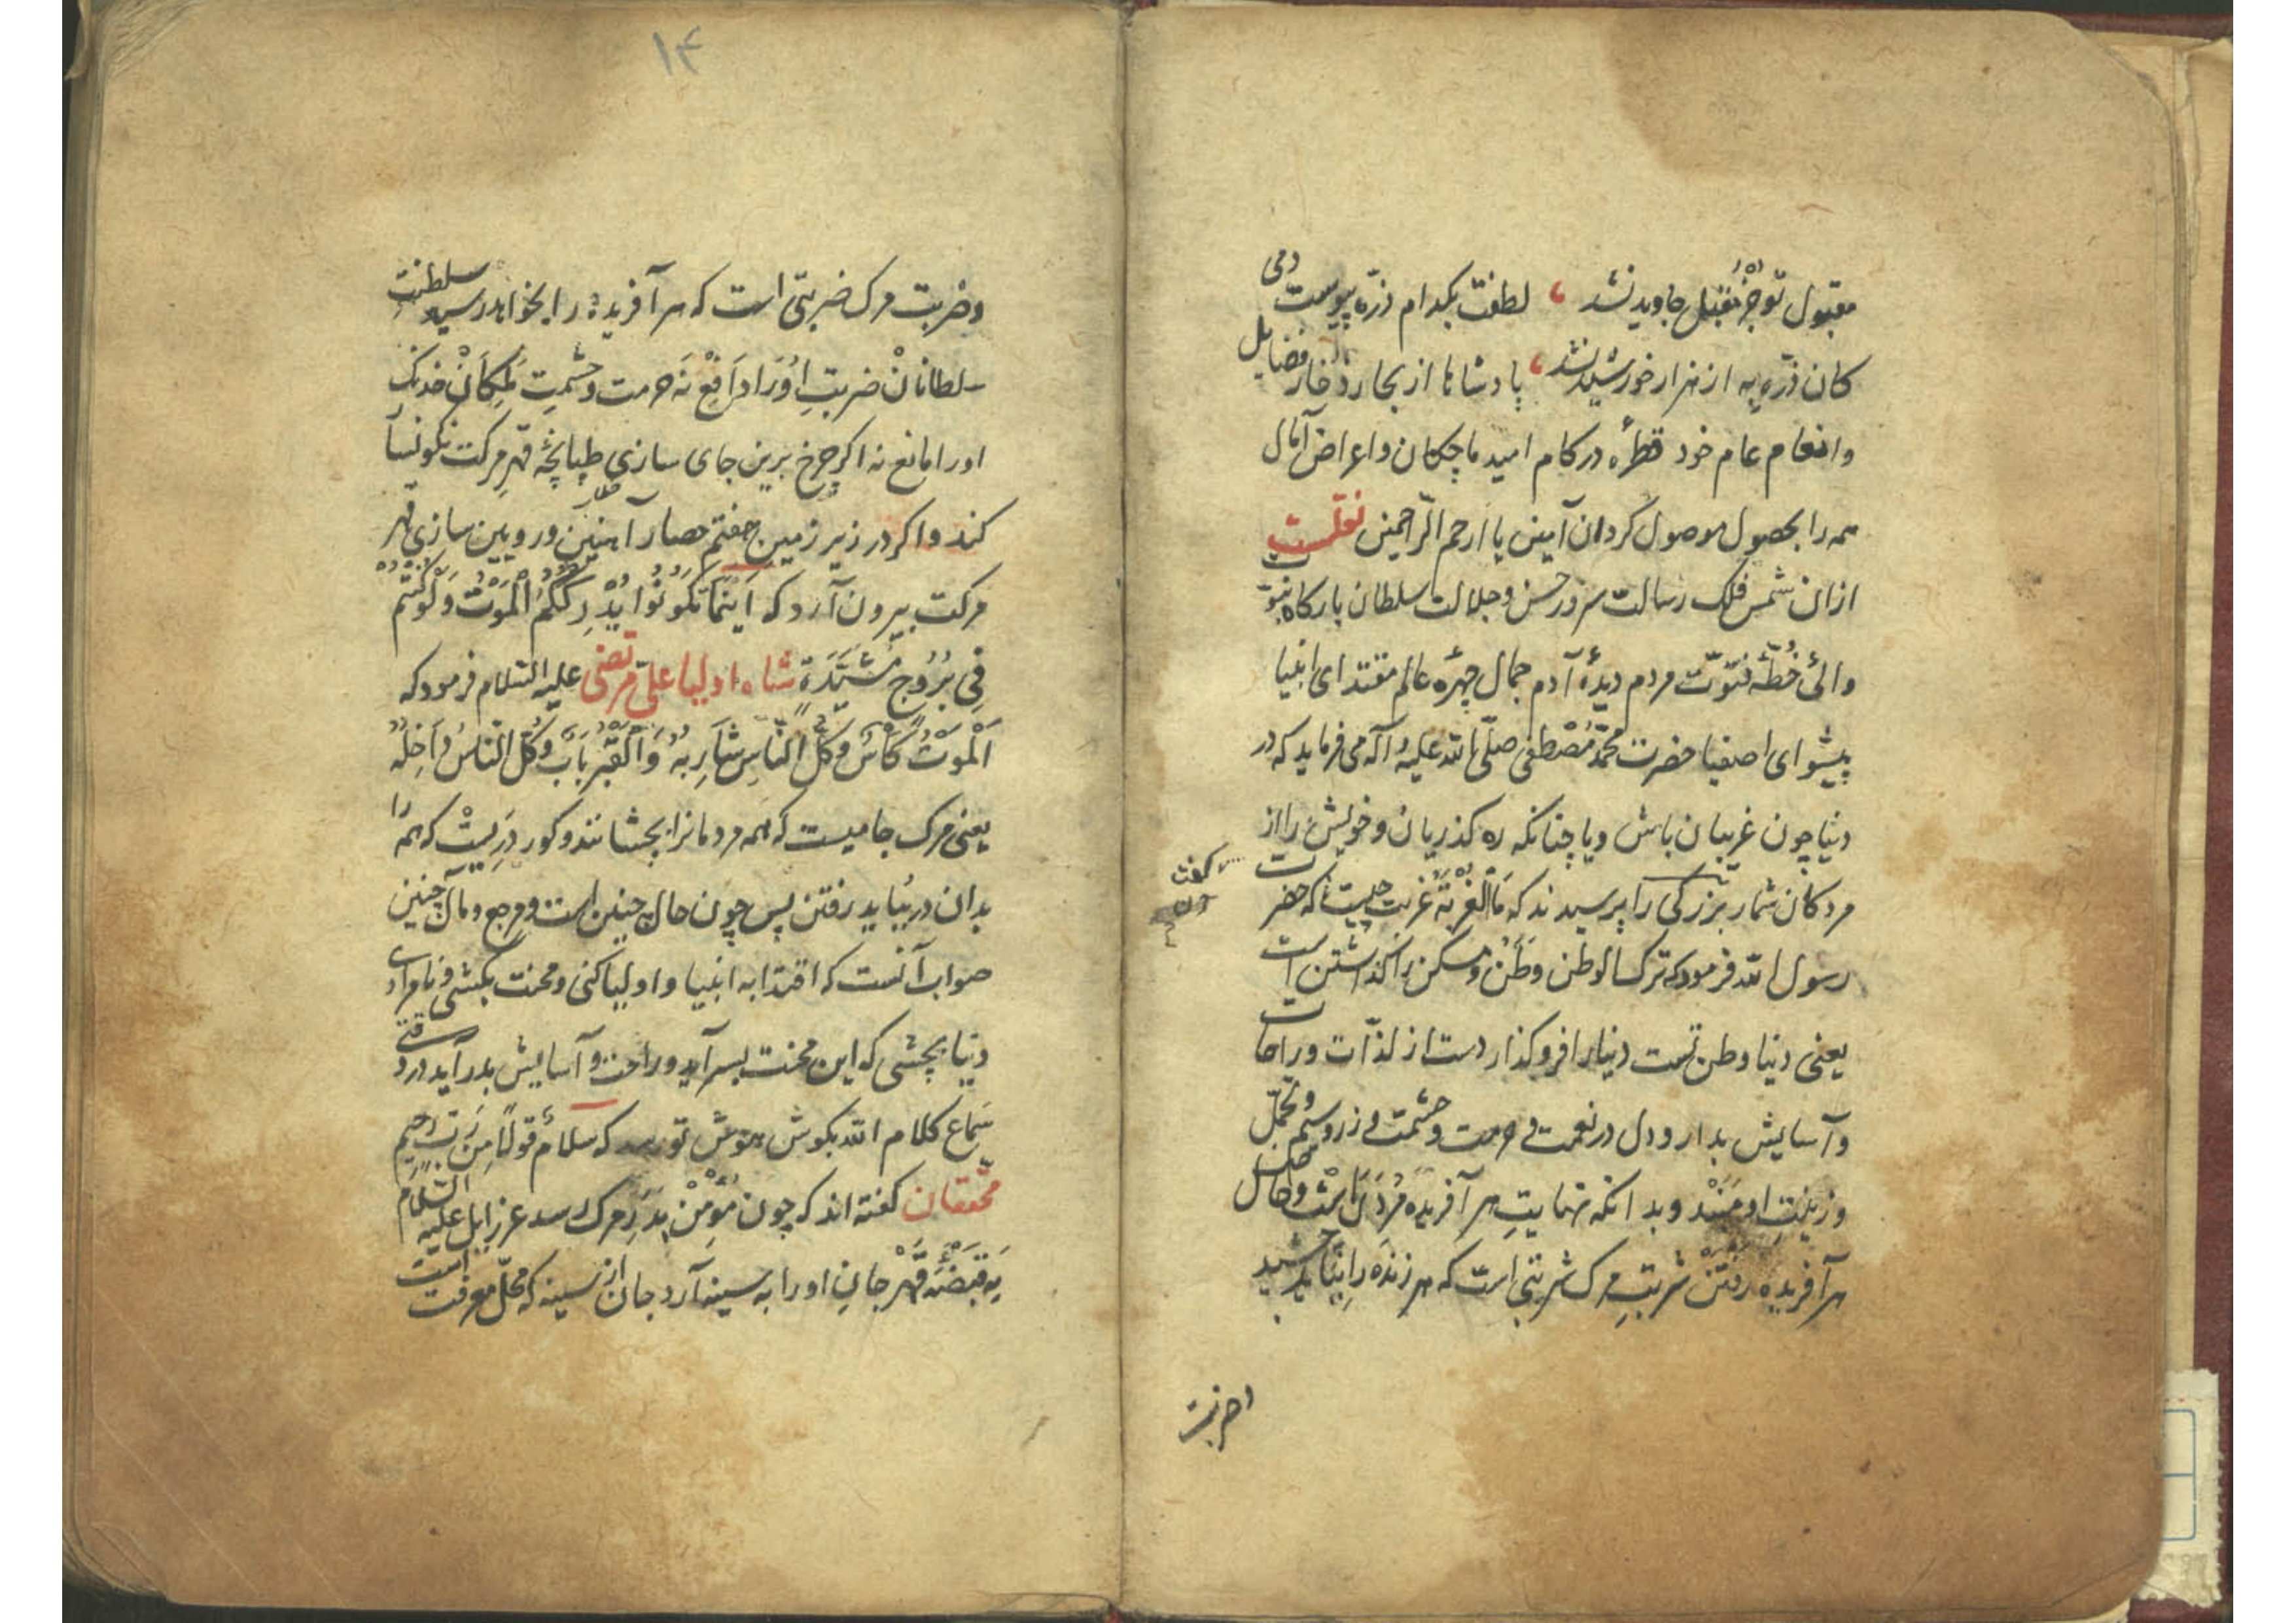 مقبول تو جز مقبل جاوید نشد ، لطفت بکدام ذره پیوست دمی
کان ذره به از هزار خورشید نشد ، پادشاها از بحار زخار فضایل
وانعام عام خود قطرهٔ در کام امید ما چکان واعراض آمال
همه را بحصول موصول کردان آمین یا ارحم الرّاحمین نقلست
ازان شمس فلک رسالت سرور حسن وجلالت سلطان بارکاه نبوّت
والئ خُطّهٔ فتوّت مردم دیدهٔ آدم جمال چهرهٔ عالم مقتدای انبیا
پیشوای اصفیا حضرت محمّد مُصْطفی صلّی الله علیه وآله می فرماید که در
دنیا چون غریبان باش ویا چنانکه ره کذریان وخویش را از
مردکان شمار بزرکی را پرسیدند که مَا الْغُرْبَة غربت چیست گفت که حضرت
رسول الله فرمود که ترک الوطن وَطَن ومسکن را کذاشتن است
یعنی دنیا وطن تست دنیا را فرو کذار دست از لذّات وراحات
وآسایش بدار ودل در نعمت وحرمت وحشمت وزر وسیم وتجمّل
وزینتِ او مَبَنْد وبدانکه نهایتِ هر آفریده مُردَن است وحاصل
هر آفریده رفتَنْ شربتِ مرک شربتی است که هر زنده را بباید چشید
وضربت
۱۴
وضربت مرک ضربتی است که هر آفریده را بخواهد رسید سلطنت
سلطانانْ ضربتِ اوُرَا دَافِعْ نَه حرمت وحشمتِ مَلِکَانْ خدنک
اورا مانع نه اکر چرخ برین جای سازی طپانچهٔ قهرِ مرکت نکونسار
کند واکر در زیر زمین هفتم حصار آهنین ورویین سازی قهر
مرکت بیرون آرد که اَیْنَمَا تَکُونُوا یُدْرِککُمُ الْمَوْتُ وَلَوْ کُنْتُمْ
فِی بُرُوجٍ مُشَیَّدَةٍ شاه اولیا علیّ مرتضی علیه السّلام فرمود که
اَلْمَوْتُ کَأْسٌ وکُلُّ النَّاسِ شَارِبُهُ وَالْقَبْرُ بَابٌ وکُلُّ النَّاسِ دَاخِلُهُ
یعنی مرک جامیست که همه مردمانرا بچشانند وکور دَرِیسْت که همه را
بدان در بباید رفتن پس چون حال چنین است ومرجع ومآل چنین
صواب آنست که اقتدا به انبیا واولیا کنی ومحنت بکشی ونامرادی
دنیا بچشی که این محنت بسر آید وراحت وآسایش بدر آید در وقتی
سَماع کلام الله بکوش هوش تو رسد که سَلَامٌ قَوْلًا مِنْ رَبٍّ رَحِیمٍ
محّققان کفته اند که چون مُؤْمِنْ بَدَرِ مرک رسد عزرایل علیه السّلام
بَه قَبْضَهٔ قَهْر جانِ اورا به سینه آرد جان از سینه که محلّ معرفت است